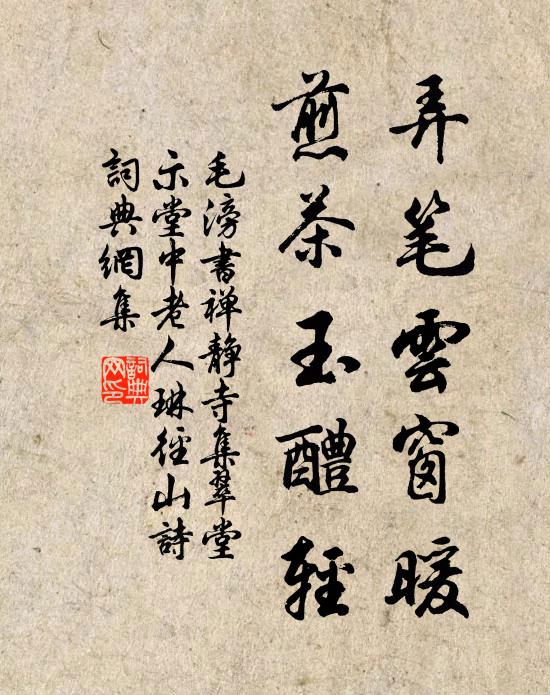 弄笔雲窗暖
煎茶玉醴輕
毛滂書禅静寺集翠堂
示堂中老人琳徑山詩
詞典網集
詞典
网印